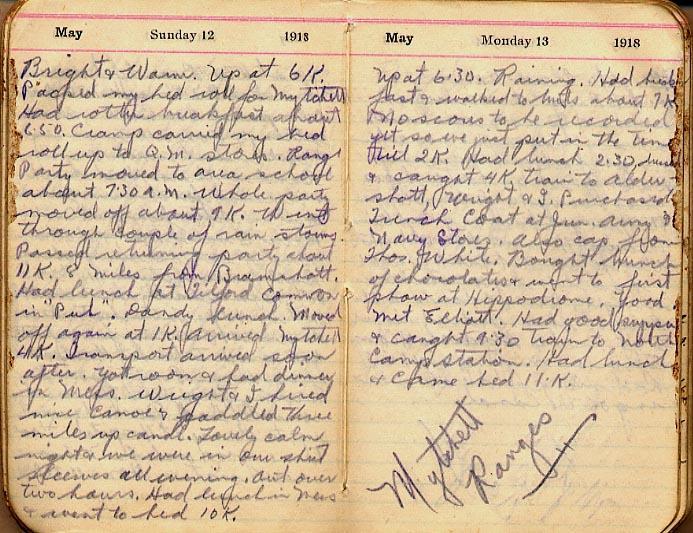 May Sunday 12 1918
Bright & Warm. Up at 6 K.
Packed my bed roll for Mytchett
Had rotten breakfast about
6.50. Cramp carried my bed
roll up to Q.M. stores. Range
Party moved to area school
about 7.30 A.M. Whole party
moved off about 9 K. Went
through couple of rain storms
Passed returning party about
11 K. 8 miles from Bramshott.
Had lunch at Tilford Common
in "Pub". Dandy lunch. Moved
off again at 1 K. Arrived Mytchett
4 K. Transport arrived soon
after. Got room & had dinner
in Mess. Wright & I hired
nice canoe & paddled three
miles up canal. Lovely calm
night & we were in our shirt
sleeves all evening. Out over
two hours. Had lunch in Mess
& went to bed 10 K.
May Monday 13 1918
Up at 6:30. Raining. Had break
fast & walked to butts about 7 K
No scores to be recorded
yet so we just put in the time
till 2 K. Had lunch 2.30,
& caught 4 K. train to Alder-
shott, Wright & I. Purchased
Trench Coat at Jun. Army &
Navy Stores. Also cap from
Thos. White. Bought bunch
of chocolates & went to first
show at Hippodrome. Good
Met Elliott. Had good supper
& caught 9.30 train to North
Camp station. Had lunch
& came bed 11 K.
Mytchett
Ranges